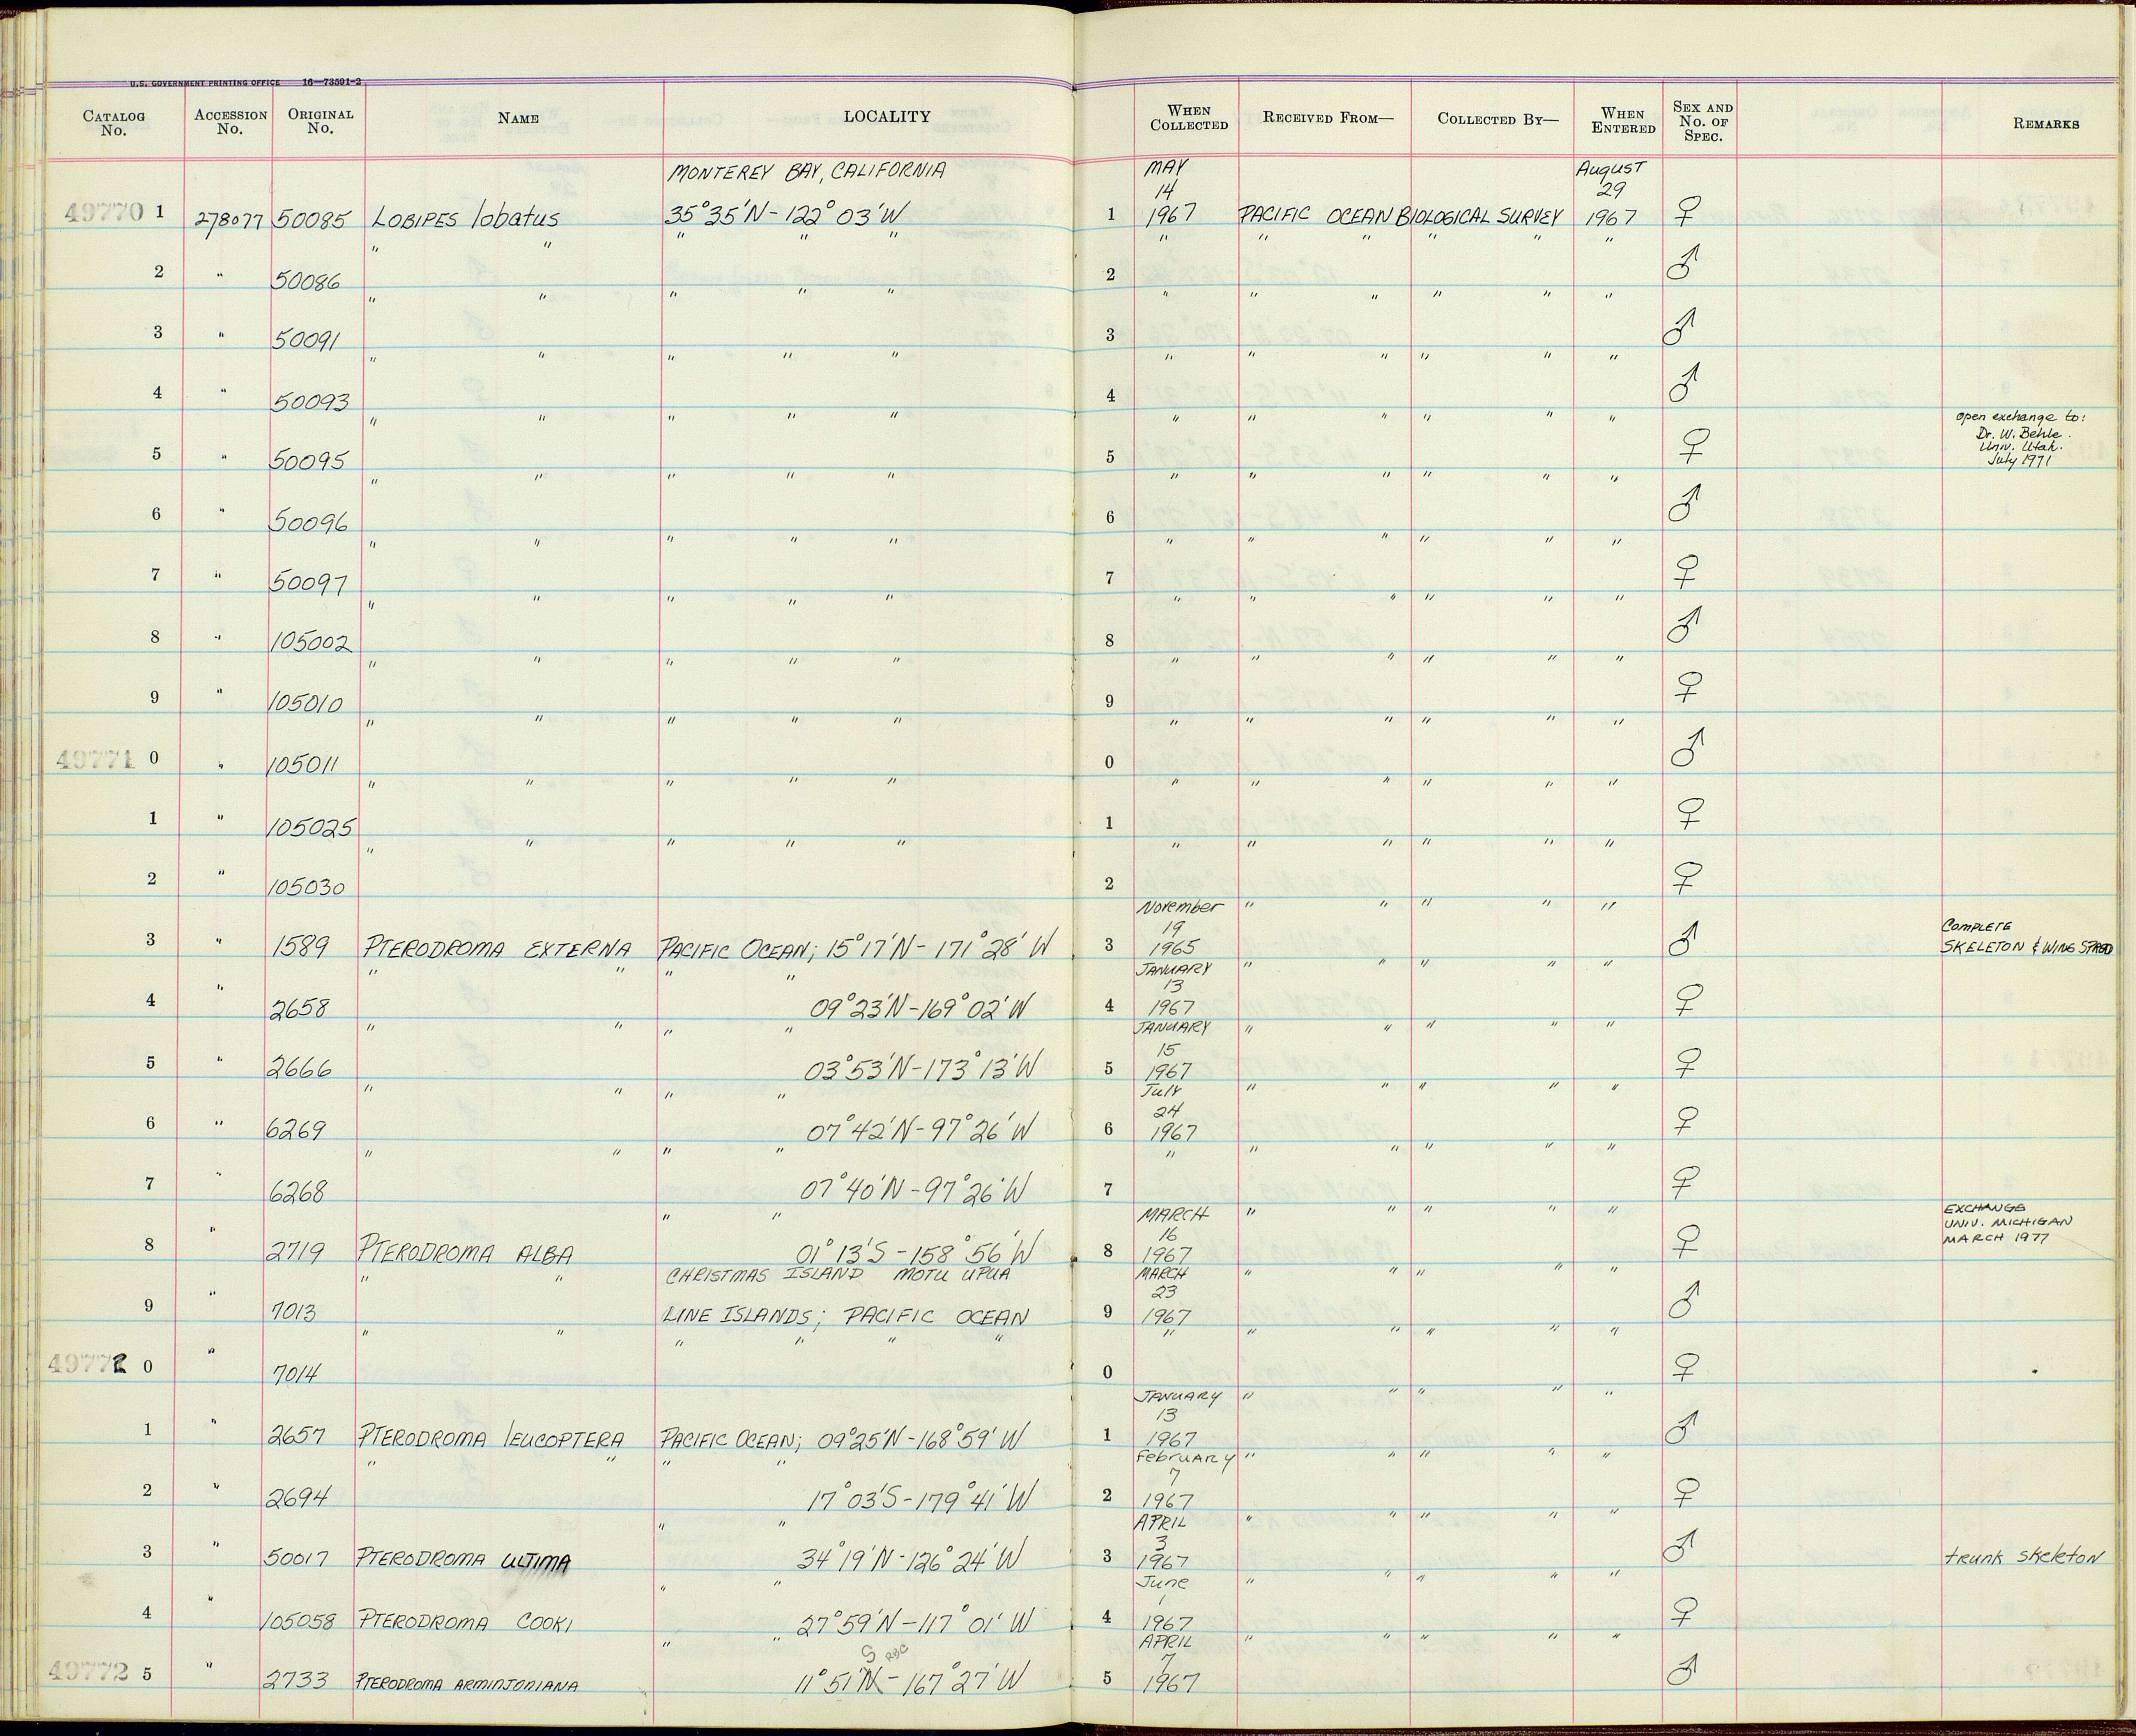 U.S. GOVERNMENT PRINTING OFFICE 16—73591-2
CATALOG No. ACCESSION No. ORIGINAL No. NAME LOCALITY WHEN COLLECTED RECEIVED FROM— COLLECTED BY— WHEN ENTERED SEX AND No. OF SPEC. REMARKS
MONTEREY BAY, CALIFORNIA MAY August
14 29
49770 1 278077 50085 LOBIPES lobatus 35°35'N - 122° 03'W 1 1967 PACIFIC OCEAN BIOLOGICAL SURVEY 1967 ♀
2 " 50086 " " " " " 2 " " " " " " ♂
3 " 50091 " " " " " 3 " " " " " " ♂
4 " 50093 " " " " " 4 " " " " " " ♂
5 " 50095 " " " " " 5 " " " " " " ♀ open exchange to:
Dr. W. Behle.
Univ. Utah.
July 1971
6 " 50096 " " " " " 6 " " " " " " ♂
7 " 50097 " " " " " 7 " " " " " " ♀
8 " 105002 " " " " " 8 " " " " " " ♂
9 " 105010 " " " " " 9 " " " " " " ♀
49771 0 " 105011 " " " " " 0 " " " " " " ♂
1 " 105025 " " " " " 1 " " " " " " ♀
2 " 105030 " " " " " 2 " " " " " " ♀
November " " " " "
19 COMPLETE
3 " 1589 PTERODROMA EXTERNA PACIFIC OCEAN; 15°17'N - 171°28' W 3 1965 ♂ SKELETON & WING SPREAD
JANUARY " " " " "
13
4 " 2658 " " " " 09°23'N - 169°02'W 4 1967 ♀
JANUARY " " " " "
15
5 " 2666 " " " " 03°53'N - 173°13'W 5 1967 ♀
July " " " " "
24
6 " 6269 " " " " 07°42'N - 97°26'W 6 1967 ♀
7 " 6268 " " " " 07°40'N - 97°26'W 7 " " " " " " ♀
MARCH " " " " " EXCHANGE
16 UNIV. MICHIGAN
MARCH 1977
8 " 2719 PTERODROMA ALBA " " 01°13'S - 158°56'W 8 1967 ♀
CHRISTMAS ISLAND MOTU UPUA MARCH " " " " "
23
9 " 7013 " " LINE ISLANDS; PACIFIC OCEAN 9 1967 ♂
49772 0 " 7014 " " " " " " 0 " " " " " " ♀
JANUARY " " " " "
13
1 " 2657 PTERODROMA leucoptera PACIFIC OCEAN; 09°25'N - 168°59'W 1 1967 ♂
February " " " " "
7
2 " 2694 " " " " 17°03'S - 179°41'W 2 1967 ♀
APRIL " " " " "
3
3 " 50017 PTERODROMA ULTIMA " " 34°19'N - 126°24'W 3 1967 ♂ trunk skeleton
June " " " " "
1
4 " 105058 PTERODROMA COOKI " " 27°59'N - 117°01'W 4 1967 ♀
APRIL " " " " "
S RBC 7
49772 5 " 2733 PTERODROMA ARMINJONIANA " " 11°51'N - 167°27'W 5 1967 ♂